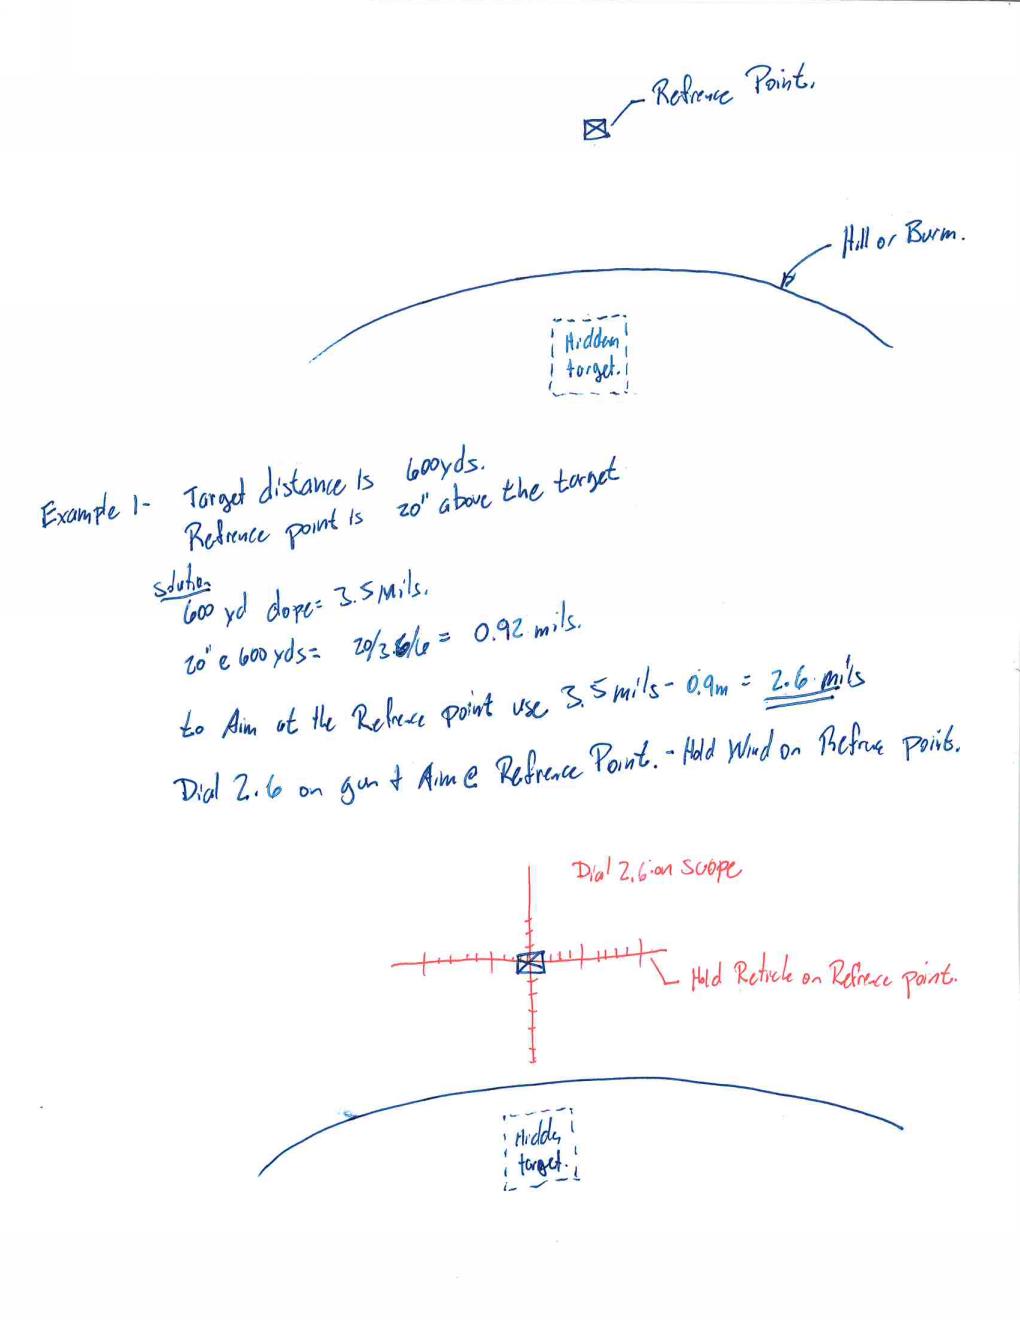 Refrence Point.
Hill or Burm.
Hidden
target.
Example 1- Target distance is 600yds.
Refrence point is 20" above the target
Solution
600 yd dope= 3.5 Mils.
20" @ 600 yds= 20/3.6/6 = 0.92 mils.
to Aim at the Refrence point use 3.5 mils - 0.9m = 2.6 mils
Dial 2.6 on gun & Aim @ Refrence Point. - Hold Wind on Refrence point.
Dial 2.6 on Scope
Hold Reticle on Refrence point.
Hidden
target.